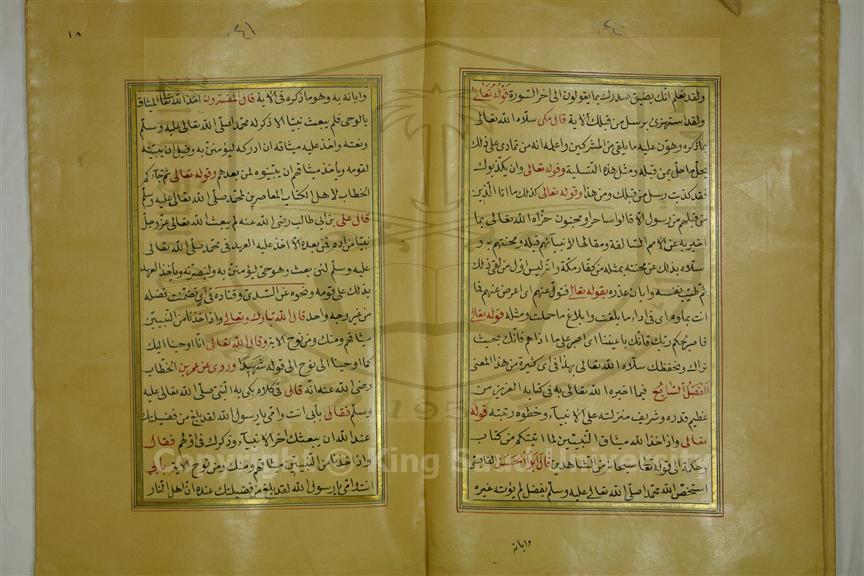 ولقد نعلم انك يضيق صدرك بما يقولون الى اخر السورة قوله تعالى
ولقد استهزئ برسل من قبلك الاية قال مكى سلاه الله تعالى
بما ذكره وهون عليه ما يلقى من المشركين واعلمه انه من تمادى على ذلك
يحل به ما حل بمن قبله ومثل هذه التسلية وقوله تعالى وان يكذبوك
فقد كذبت رسل من قبلك ومن هذا وقوله تعالى كذلك ما اتى الذين
من قبلهم من رسول الا قالوا ساحر او مجنون عزاه الله تعالى بما
اخبر به عن الامم السالفة ومقالها لانبيائهم قبله ومحنتهم بهم و
سلاه بذلك عن محنته بمثله من كفار مكة وانه ليس اول من لقى ذلك
ثم طيب نفسه وابان عذره بقوله تعالى فتول عنهم اى اعرض عنهم فما
انت بملوم اى فى اداء ما بلغت وابلاغ ما حملت ومثله قوله تعالى
فاصبر لحكم ربك فانك باعيننا اى اصبر على ما اذاهم فانك بحيث
نراك ونحفظك سلاه الله تعالى بهذا فى اى كثيرة من هذا المعنى
الفصل السابع فيما اخبره الله تعالى به فى كتابه العزيز من
عظيم قدره وشريف منزلته على الانبياء وحظوه رتبته قوله
تعالى واذ اخذ الله ميثاق النبيين لما اتيتكم من كتاب
وحكمة الى قوله تعالى من الشاهدين قال ابو الحسن القابسى
استخص الله محمدا صلى الله تعالى عليه وسلم بفضل لم يؤته غيره
وابانه
١٨
وابانه به وهو ما ذكره فى الاية قال المفسرون اخذ الله تعالى الميثاق
بالوحى فلم يبعث نبيا الا ذكر له محمدا صلى الله تعالى عليه وسلم
ونعته واخذ عليه ميثاقه ان ادركه ليؤمنن به وقيل ان يبينه
لقومه وياخذ ميثاقهم ان يبينوه لمن بعدهم وقوله تعالى ثم جاءكم
الخطاب لاهل الكتاب المعاصرين لمحمد صلى الله تعالى عليه وسلم
قال على بن ابى طالب رضى الله عنه لم يبعث الله تعالى عز وجل
نبيا من ادم فمن بعده الا اخذ عليه العهد فى محمد صلى الله تعالى
عليه وسلم لئن بعث وهو حى ليؤمنن به ولينصرنه وياخذ العهد
بذلك على قومه ونحوه عن السدى وقتاده فى اى تضمنت فضله
من غير وجه واحد قال الله تبارك وتعالى واذ اخذنا من النبيين
ميثاقهم ومنك ومن نوح الاية وقال الله تعالى انا اوحينا اليك
كما اوحينا الى نوح الى قوله شهيدا وروى عن عمر بن الخطاب
رضى الله عنه انه قال فى كلام بكى به النبى صلى الله تعالى عليه
وسلم فقال بابى انت وامى يا رسول الله لقد بلغ من فضيلتك
عند الله ان بعثك اخر الانبياء وذكرك فى اولهم فقال
واذ اخذنا من النبيين ميثاقهم ومنك ومن نوح الاية بابى
انت وامى يا رسول الله لقد بلغ من فضيلتك عنده ان اهل النار
Copyright © King Saud University
1957